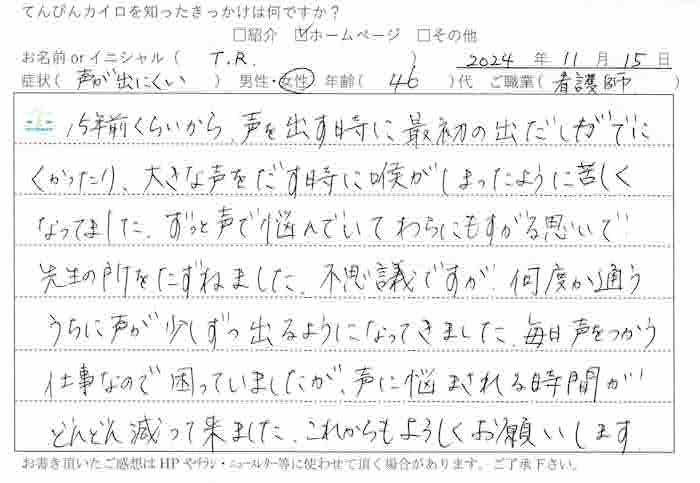 てんびんカイロを知ったきっかけは何ですか?
□紹介 ☑ホームページ □その他
お名前orイニシャル( T.R. ) 2024 年 11 月 15 日
症状( 声が出にくい ) 男性・女性 年齢( 40 )代 ご職業( 看護師 )
15年前くらいから、声を出す時に最初の出だしがでに
くかったり、大きな声をだす時に喉がしまったように苦しく
なってました。ずっと声で悩んでいてわらにもすがる思いで
先生の所をたずねました。不思議ですが、何度か通う
うちに声が少しずつ出るようになってきました。毎日声をつかう
仕事なので困っていましたが、声に悩まされる時間が
どんどん減って来ました。これからもよろしくお願いします
お書き頂いたご感想はHPやチラシ・ニュースレター等に使わせて頂く場合があります。ご了承下さい。